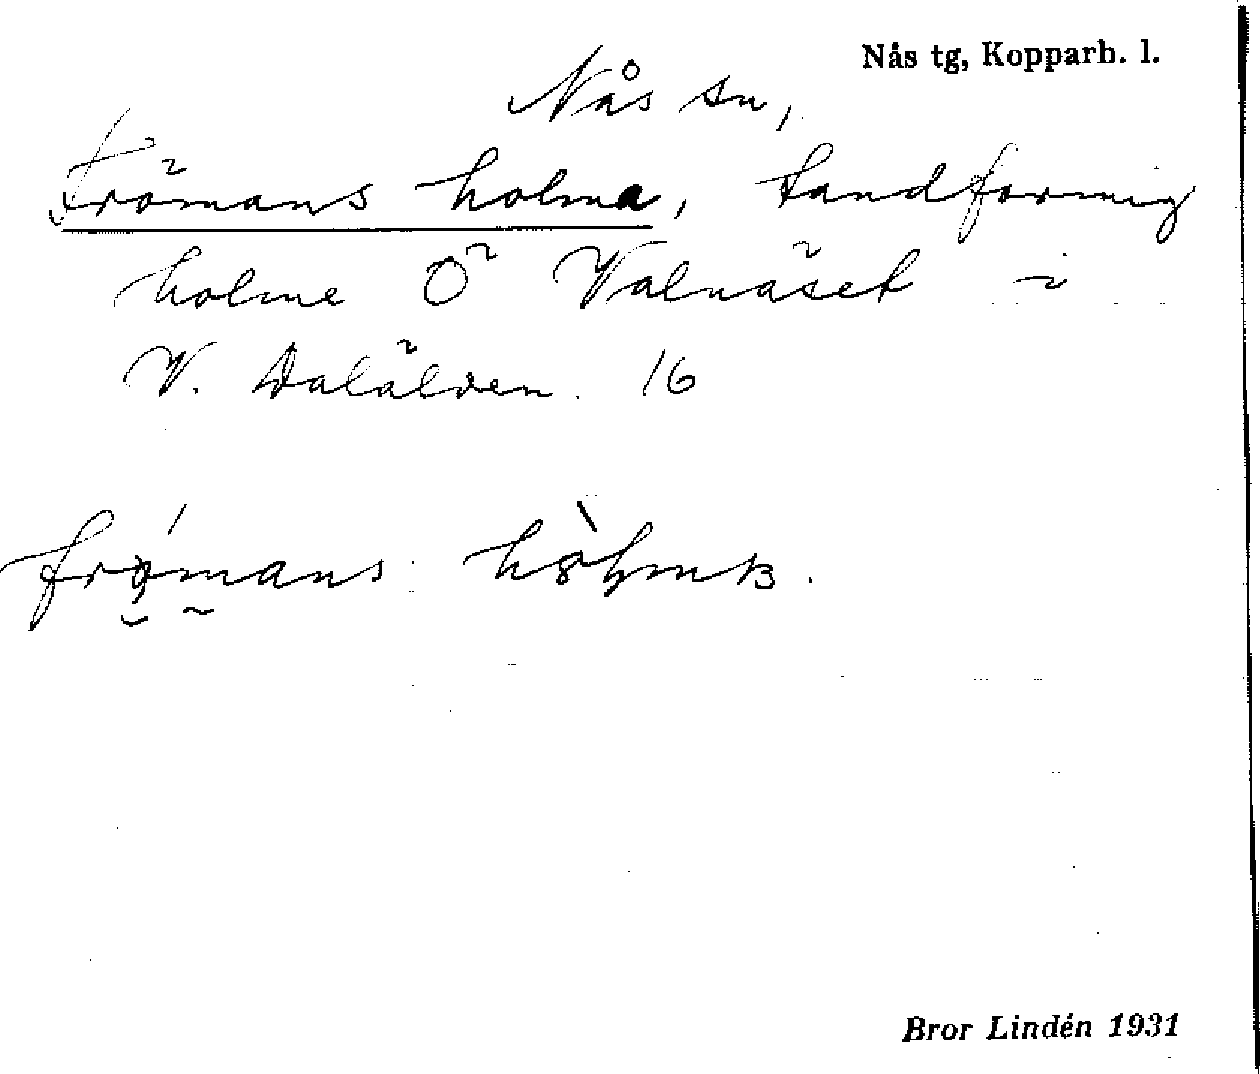 Nås tg, Kopparb. l.
Nås sn,
Frömans holma, tandformig
holme Ö Valnäset i
V. Dalälven. 16
Bror Lindén 1931